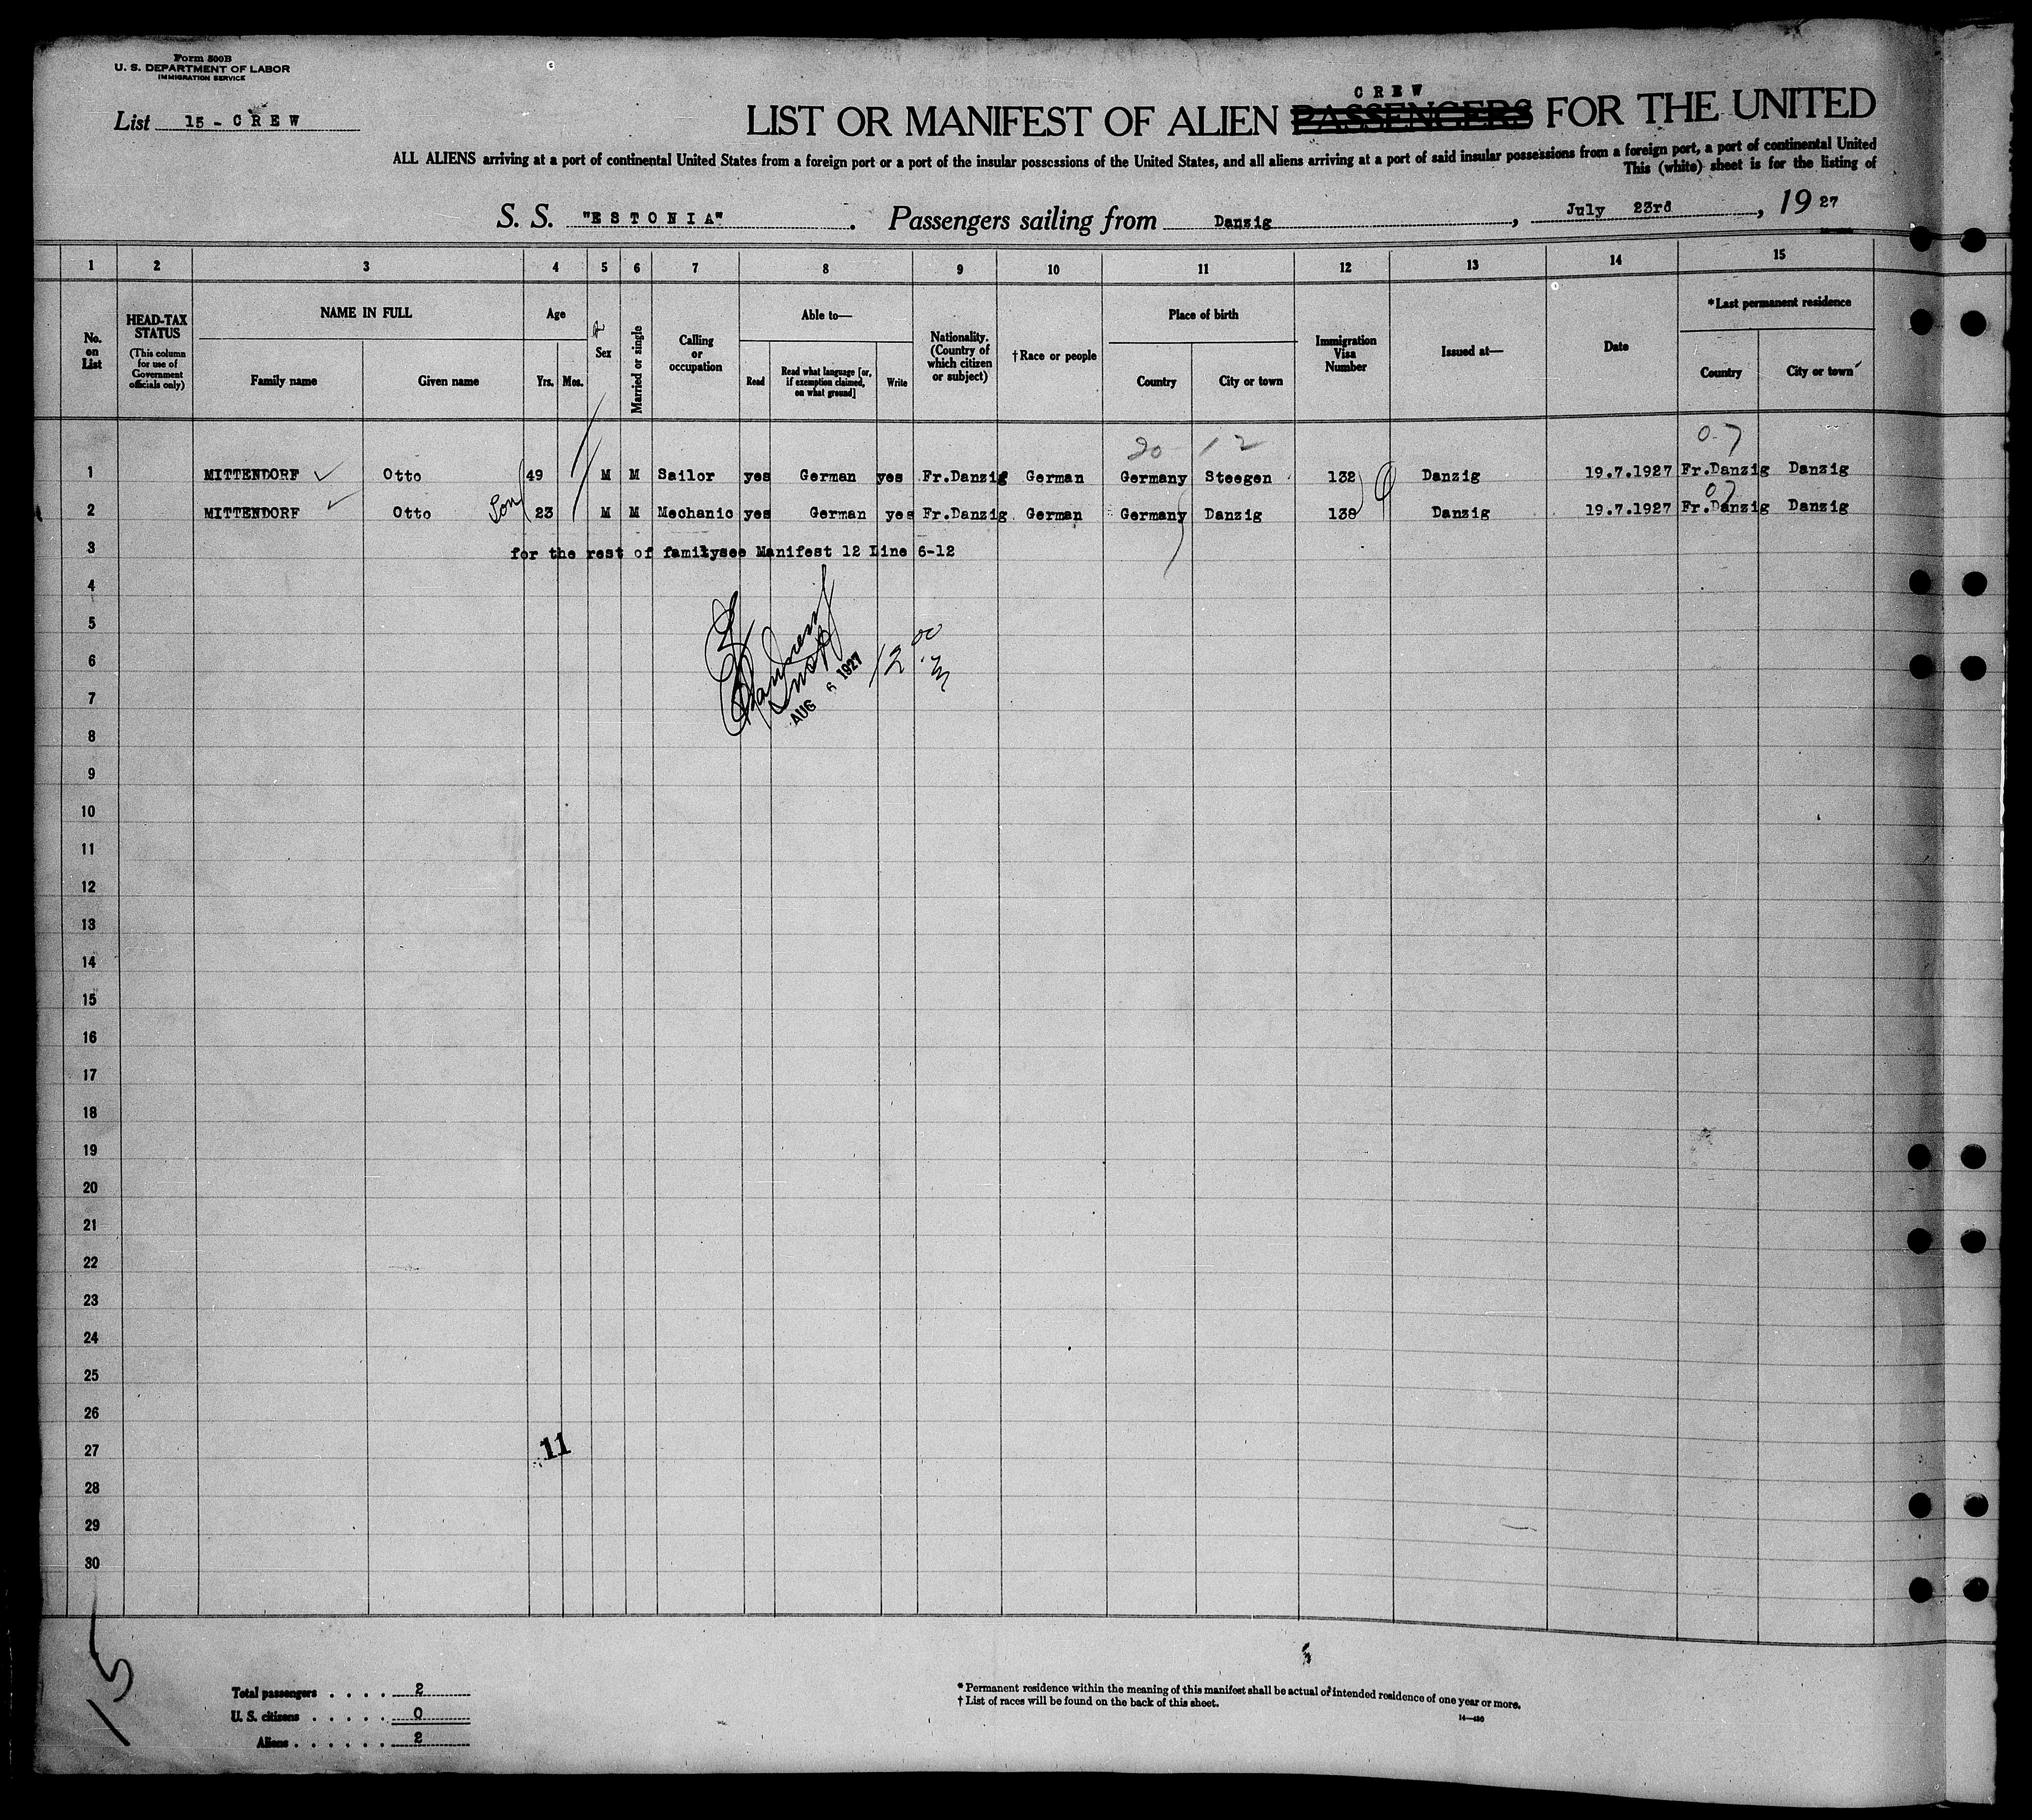 Form 500B
U. S. DEPARTMENT OF LABOR
IMMIGRATION SERVICE
List 15 - CREW
CREW
LIST OR MANIFEST OF ALIEN PASSENGERS FOR THE UNITED
ALL ALIENS arriving at a port of continental United States from a foreign port or a port of the insular possessions of the United States, and all aliens arriving at a port of said insular possessions from a foreign port, a port of continental United
This (white) sheet is for the listing of
S. S. "ESTONIA". Passengers sailing from Danzig, July 23rd, 1927
1 2 3 4 5 6 7 8 9 10 11 12 13 14 15
No. on List
HEAD-TAX STATUS
(This column for use of Government officials only)
NAME IN FULL
Family name Given name
Age
Yrs. Mos.
Sex
Married or single
Calling or occupation
Able to—
Read
Read what language [or, if exemption claimed, on what ground]
Write
Nationality. (Country of which citizen or subject)
†Race or people
Place of birth
Country City or town
Immigration Visa Number
Issued at—
Date
*Last permanent residence
Country City or town
20 12 0-7
1 MITTENDORF Otto 49 M M Sailor yes German yes Fr.Danzig German Germany Steegen 132 Danzig 19.7.1927 Fr.Danzig Danzig
07
2 MITTENDORF Otto Son 23 M M Mechanic yes German yes Fr.Danzig German Germany Danzig 138 Danzig 19.7.1927 Fr.Danzig Danzig
3 for the rest of familysee Manifest 12 Line 6-12
4
5
6
7
AUG 6 1927
8
9
10
11
12
13
14
15
16
17
18
19
20
21
22
23
24
25
26
27
11
28
29
30
15
Total passengers . . . . 2
U. S. citizens . . . . . 0
Aliens . . . . . . 2
* Permanent residence within the meaning of this manifest shall be actual or intended residence of one year or more.
† List of races will be found on the back of this sheet.
14—480